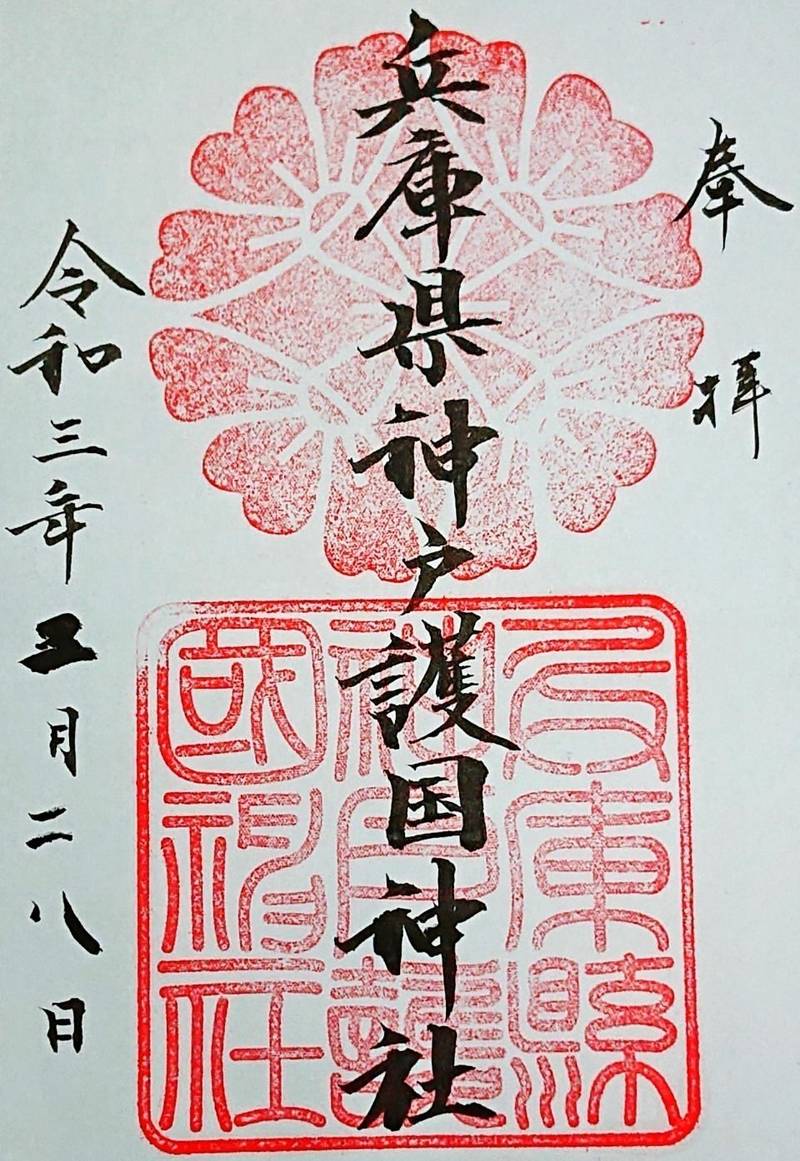 奉拝
兵庫県神戸護国神社
令和三年五月二八日
兵庫縣
神戸護
國神社